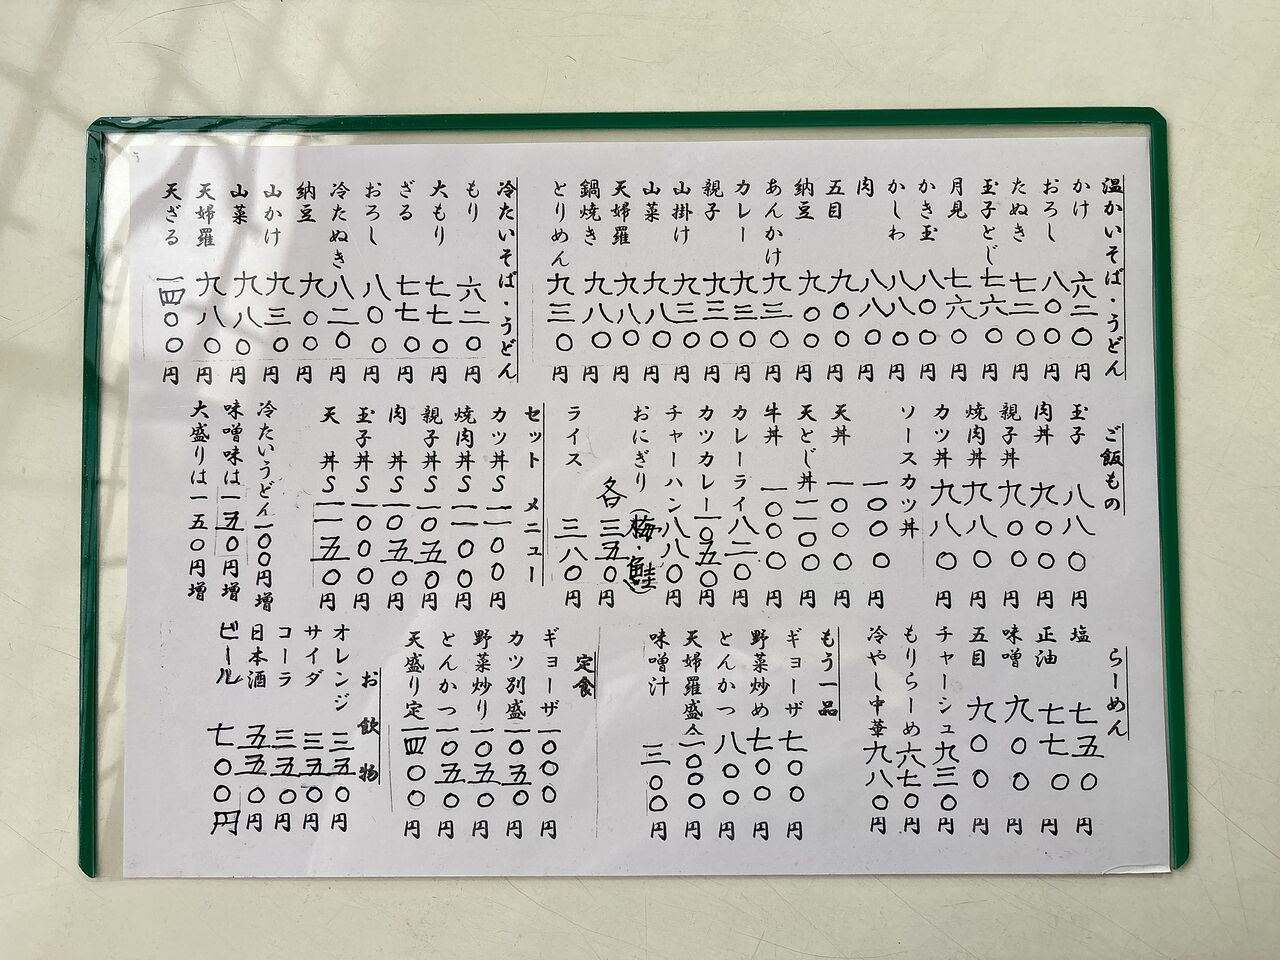 温かいそば・うどん
かけ 六二〇円
おろし 八〇〇円
たぬき 七二〇円
玉子とじ 七六〇円
月見 七六〇円
かき玉 八〇〇円
かしわ 八八〇円
肉 八八〇円
五目 九〇〇円
納豆 九〇〇円
あんかけ 九三〇円
カレー 九三〇円
親子 九三〇円
山掛け 九三〇円
山菜 九八〇円
天婦羅 九八〇円
鍋焼き 九八〇円
とりめん 九三〇円
冷たいそば・うどん
もり 六二〇円
大もり 七七〇円
ざる 七七〇円
おろし 八〇〇円
冷たぬき 八二〇円
納豆 九〇〇円
山かけ 九三〇円
山菜 九八〇円
天婦羅 九八〇円
天ざる 一四〇〇円
ご飯もの
玉子 八八〇円
肉丼 九〇〇円
親子丼 九〇〇円
焼肉丼 九八〇円
カツ丼 九八〇円
ソースカツ丼 一〇〇〇円
天丼 一〇〇〇円
天とじ丼 一一〇〇円
牛丼 一〇〇〇円
カレーライ 八二〇円
カツカレー 一〇五〇円
チャーハン 八八〇円
おにぎり(梅・鮭) 各三五〇円
ライス 三八〇円
セットメニュー
カツ丼S 一一〇〇円
焼肉丼S 一一〇〇円
親子丼S 一〇五〇円
肉丼S 一〇五〇円
玉子丼S 一〇〇〇円
天丼S 一一五〇円
冷たいうどん一〇〇円増
味噌味は一五〇円増
大盛りは一五〇円増
らーめん
塩 七五〇円
正油 七七〇円
味噌 九〇〇円
五目 九〇〇円
チャーシュ 九三〇円
もりらーめ 六七〇円
冷やし中華 九八〇円
もう一品
ギョーザ 七〇〇円
野菜炒め 七〇〇円
とんかつ 八〇〇円
天婦羅盛合 一〇〇〇円
味噌汁 三〇〇円
定食
ギョーザ 一〇〇〇円
カツ別盛 一〇五〇円
野菜炒り 一〇五〇円
とんかつ 一〇五〇円
天盛り定 一四〇〇円
お飲物
オレンジ 三五〇円
サイダ 三五〇円
コーラ 三五〇円
日本酒 五五〇円
ビール 七〇〇円